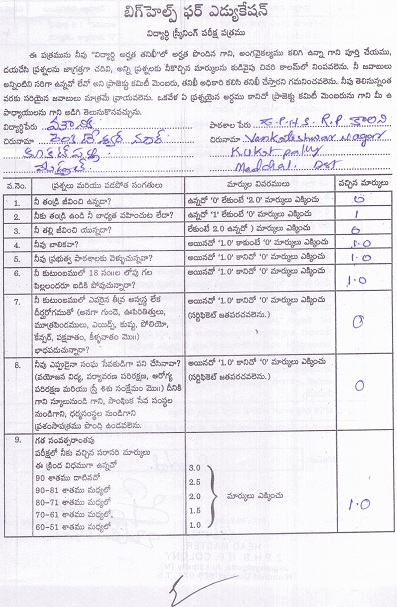 బిగ్‌హెల్ప్ ఫర్ ఎడ్యుకేషన్
విద్యార్థి స్క్రీనింగ్ పరీక్ష పత్రము
ఈ పత్రమును నీవు "విద్యార్థి అర్హత తనిఖీ"లో అర్హత పొందిన గాని, అంగవైకల్యము కలిగి ఉన్నా గాని పూర్తి చేయుము,
దయచేసి ప్రశ్నలను జాగ్రత్తగా చదివి, అన్ని ప్రశ్నలకు నీకొచ్చిన మార్కులను కుడివైపు చివరి కాలమ్‌లో నింపవలెను. నీ జవాబులు
అన్నింటిని సరిగా ఉన్నవో లేవో అని ప్రాజెక్టు కమిటీ మెంబరు, తనిఖీ అధికారి కలిసి తనిఖీ చేస్తారని గమనించవలెను. నీవు తెలిసినన్నంత
వరకు సరియైన జవాబులు మాత్రమే వ్రాయవలెను. ఒకవేళ ఏ ప్రశ్నయైన అర్థము కానిచో ప్రాజెక్టు కమిటీ మెంబరును గాని మీ ఉ
పాధ్యాయులను గాని అడిగి తెలుసుకొనవచ్చును.
విద్యార్థిపేరు మౌనిక పాఠశాల పేరు Z.P.H.S. R.P. కాలని
చిరునామా వెంకటేశ్వర నగర్ చిరునామా Venkateshwar nagar
కూకట్‌పల్లి Kukat pally
మేడ్చల్ Medchal Dst
వ.నెం. ప్రశ్నలు మరియు పడపోత సంగతులు మార్కుల వివరములు వచ్చిన మార్కులు
1. నీ తండ్రి జీవించి ఉన్నడా? ఉన్నచో '0' లేకుంటే '2.0' మార్కులు ఎక్కించు 0
2. నీకు తండ్రి ఉండి నీ బాధ్యత వహించుట లేదా? ఉన్నచో '1' లేకుంటే '0' మార్కులు ఎక్కించు 1
3. నీ తల్లి జీవించి యున్నదా? లేకుంటే 2.0 ఉన్నచో ) మార్కులు ఎక్కించు 0
4. నీవు బాలికవా? అయినచో '1.0' కాకుంటే '0' మార్కులు ఎక్కించు 1.0
5. నీవు ప్రభుత్వ పాఠశాలకు వెళ్ళుచున్నవా? అయినచో '1.0' కానిచో '0' మార్కులు ఎక్కించు 1.0
6. నీ కుటుంబములో 18 సం॥ల లోపు గల
పిల్లలందరూ బడికి పోవుచున్నారా? అయినచో '1.0' కానిచో '0' మార్కులు ఎక్కించు 1.0
7. నీ కుటుంబములో ఎవరైన తీవ్ర అస్వస్థ లేక
దీర్ఘరోగముతో (అనగా గుండె, ఊపిరితిత్తులు,
మూత్రపిండములు, ఎయిడ్స్, కుష్ఠు, పోలియో,
కేన్సర్, పక్షవాతం, కీళ్ళవాతం మొ॥)
బాధపడుచున్నారా? అయినచో '1.0' కానిచో '0' మార్కులు ఎక్కించు
(సర్టిఫికెట్ జతపరచవలెను.) 0
8. నీవు ఎప్పుడైనా సంఘ సేవకుడిగా పని చేసినావా?
(వయోజన విద్య, పర్యావరణ పరిరక్షణ, ఆరోగ్య
పరిరక్షణ మరియు స్త్రీ శిశు సంక్షేమం మొ॥) దీనికి
గాని స్కూలునుండి గాని, సాంఘిక సేవ సంస్థల
నుండిగాని, ధర్మసంస్థల నుండిగాని
ప్రశంసాపత్రము పొంది ఉండవలెను. అయినచో '1.0' కానిచో '0' మార్కులు ఎక్కించు
(సర్టిఫికెట్ జతపరచవలెను.) 0
9. గత సంవత్సరాంతపు
పరీక్షలో నీకు వచ్చిన సరాసరి మార్కులు
ఈ క్రింది విధముగా ఉన్నచో
90 శాతము దాటినచో 3.0
90-81 శాతము మధ్యలో 2.5
80-71 శాతము మధ్యలో 2.0 మార్కులు ఎక్కించు
70-61 శాతము మధ్యలో 1.5
60-51 శాతము మధ్యలో 1.0
1.0